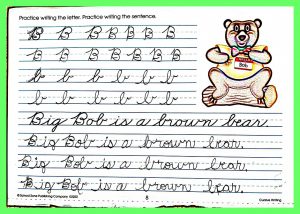 Practice writing the letter. Practice writing the sentence.
B B B B B B B
B B B B B B B
b b b b b b
b b b b b b
Bob
Big Bob is a brown bear.
Big Bob is a brown bear.
Big Bob is a brown bear.
Big Bob is a brown bear.
© School Zone Publishing Company
8
Cursive Writing